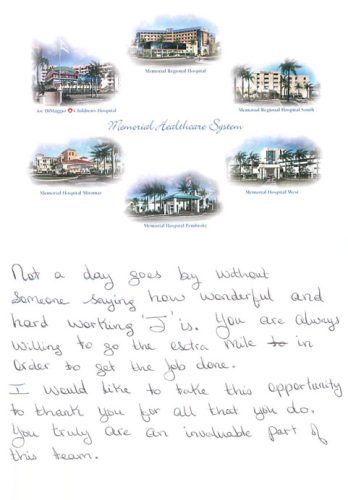 Memorial Regional Hospital
Joe DiMaggio Children's Hospital
Memorial Regional Hospital South
Memorial Healthcare System
Memorial Hospital Miramar
Memorial Hospital West
Memorial Hospital Pembroke
Not a day goes by without
someone saying how wonderful and
hard working 'J' is. You are always
willing to go the esctra mile to in
order to get the job done.
I would like to take this opportunity
to thank you for all that you do.
You truly are an invaluable part of
this team.